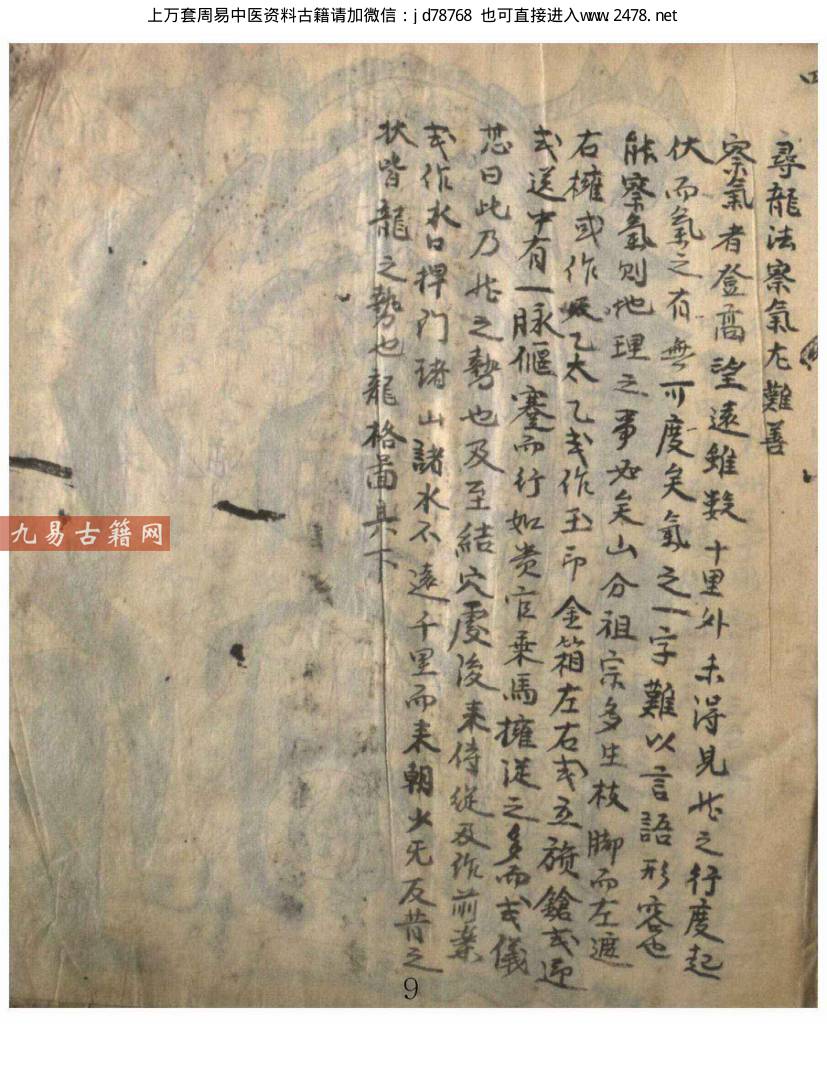 上万套周易中医资料古籍请加微信：jd78768 也可直接进入www.2478.net
四
尋龍法察氣尤難善
察氣者登高望遠雖数十里外未得見龙之行度起
伏而氣之有無可度矣氣之一字難以言語形容也
能察氣則地理之事必矣山分祖宗多生枝脚而左遮
右擁或作天乙太乙或作玉印金箱左右或立旗鎗或迎
或送中有一脉偃蹇而行如贵官乗馬擁從之多而或儀
曰此乃龙之勢也及至結穴處後来侍從及作前案
或作水口捍门诸山諸水不遠千里而来朝少无反背之
状皆龍之勢也龍格啚具下
九易古籍网
9